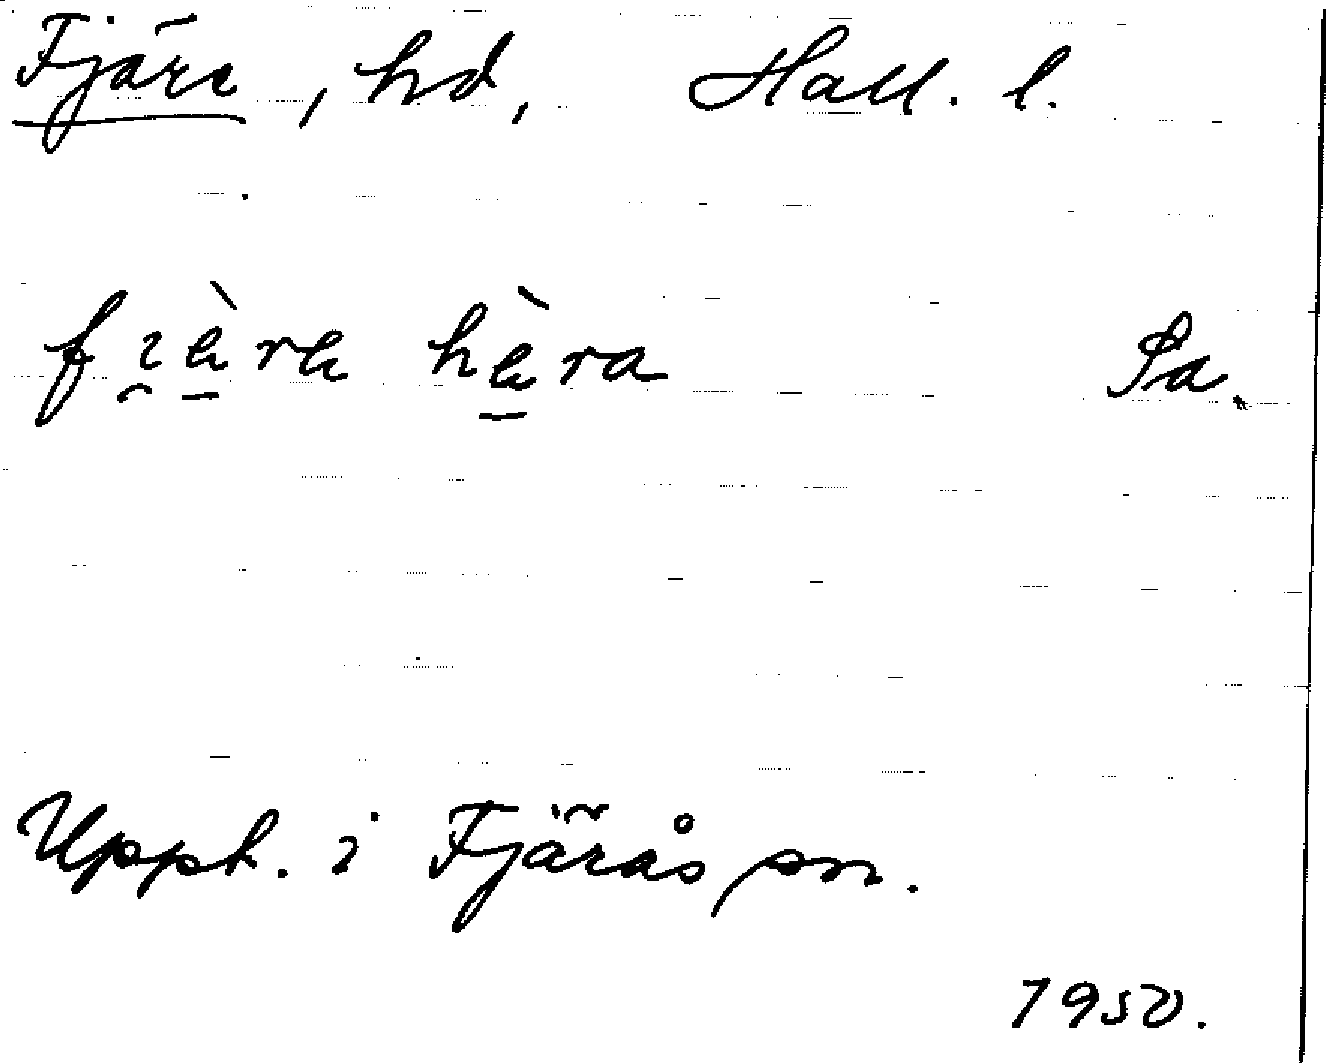 Fjäre, hd, Hall. l.
fi̯æ̠̀ra hæ̠̀ra Sa.
Uppt. i Fjärås sn.
1950.